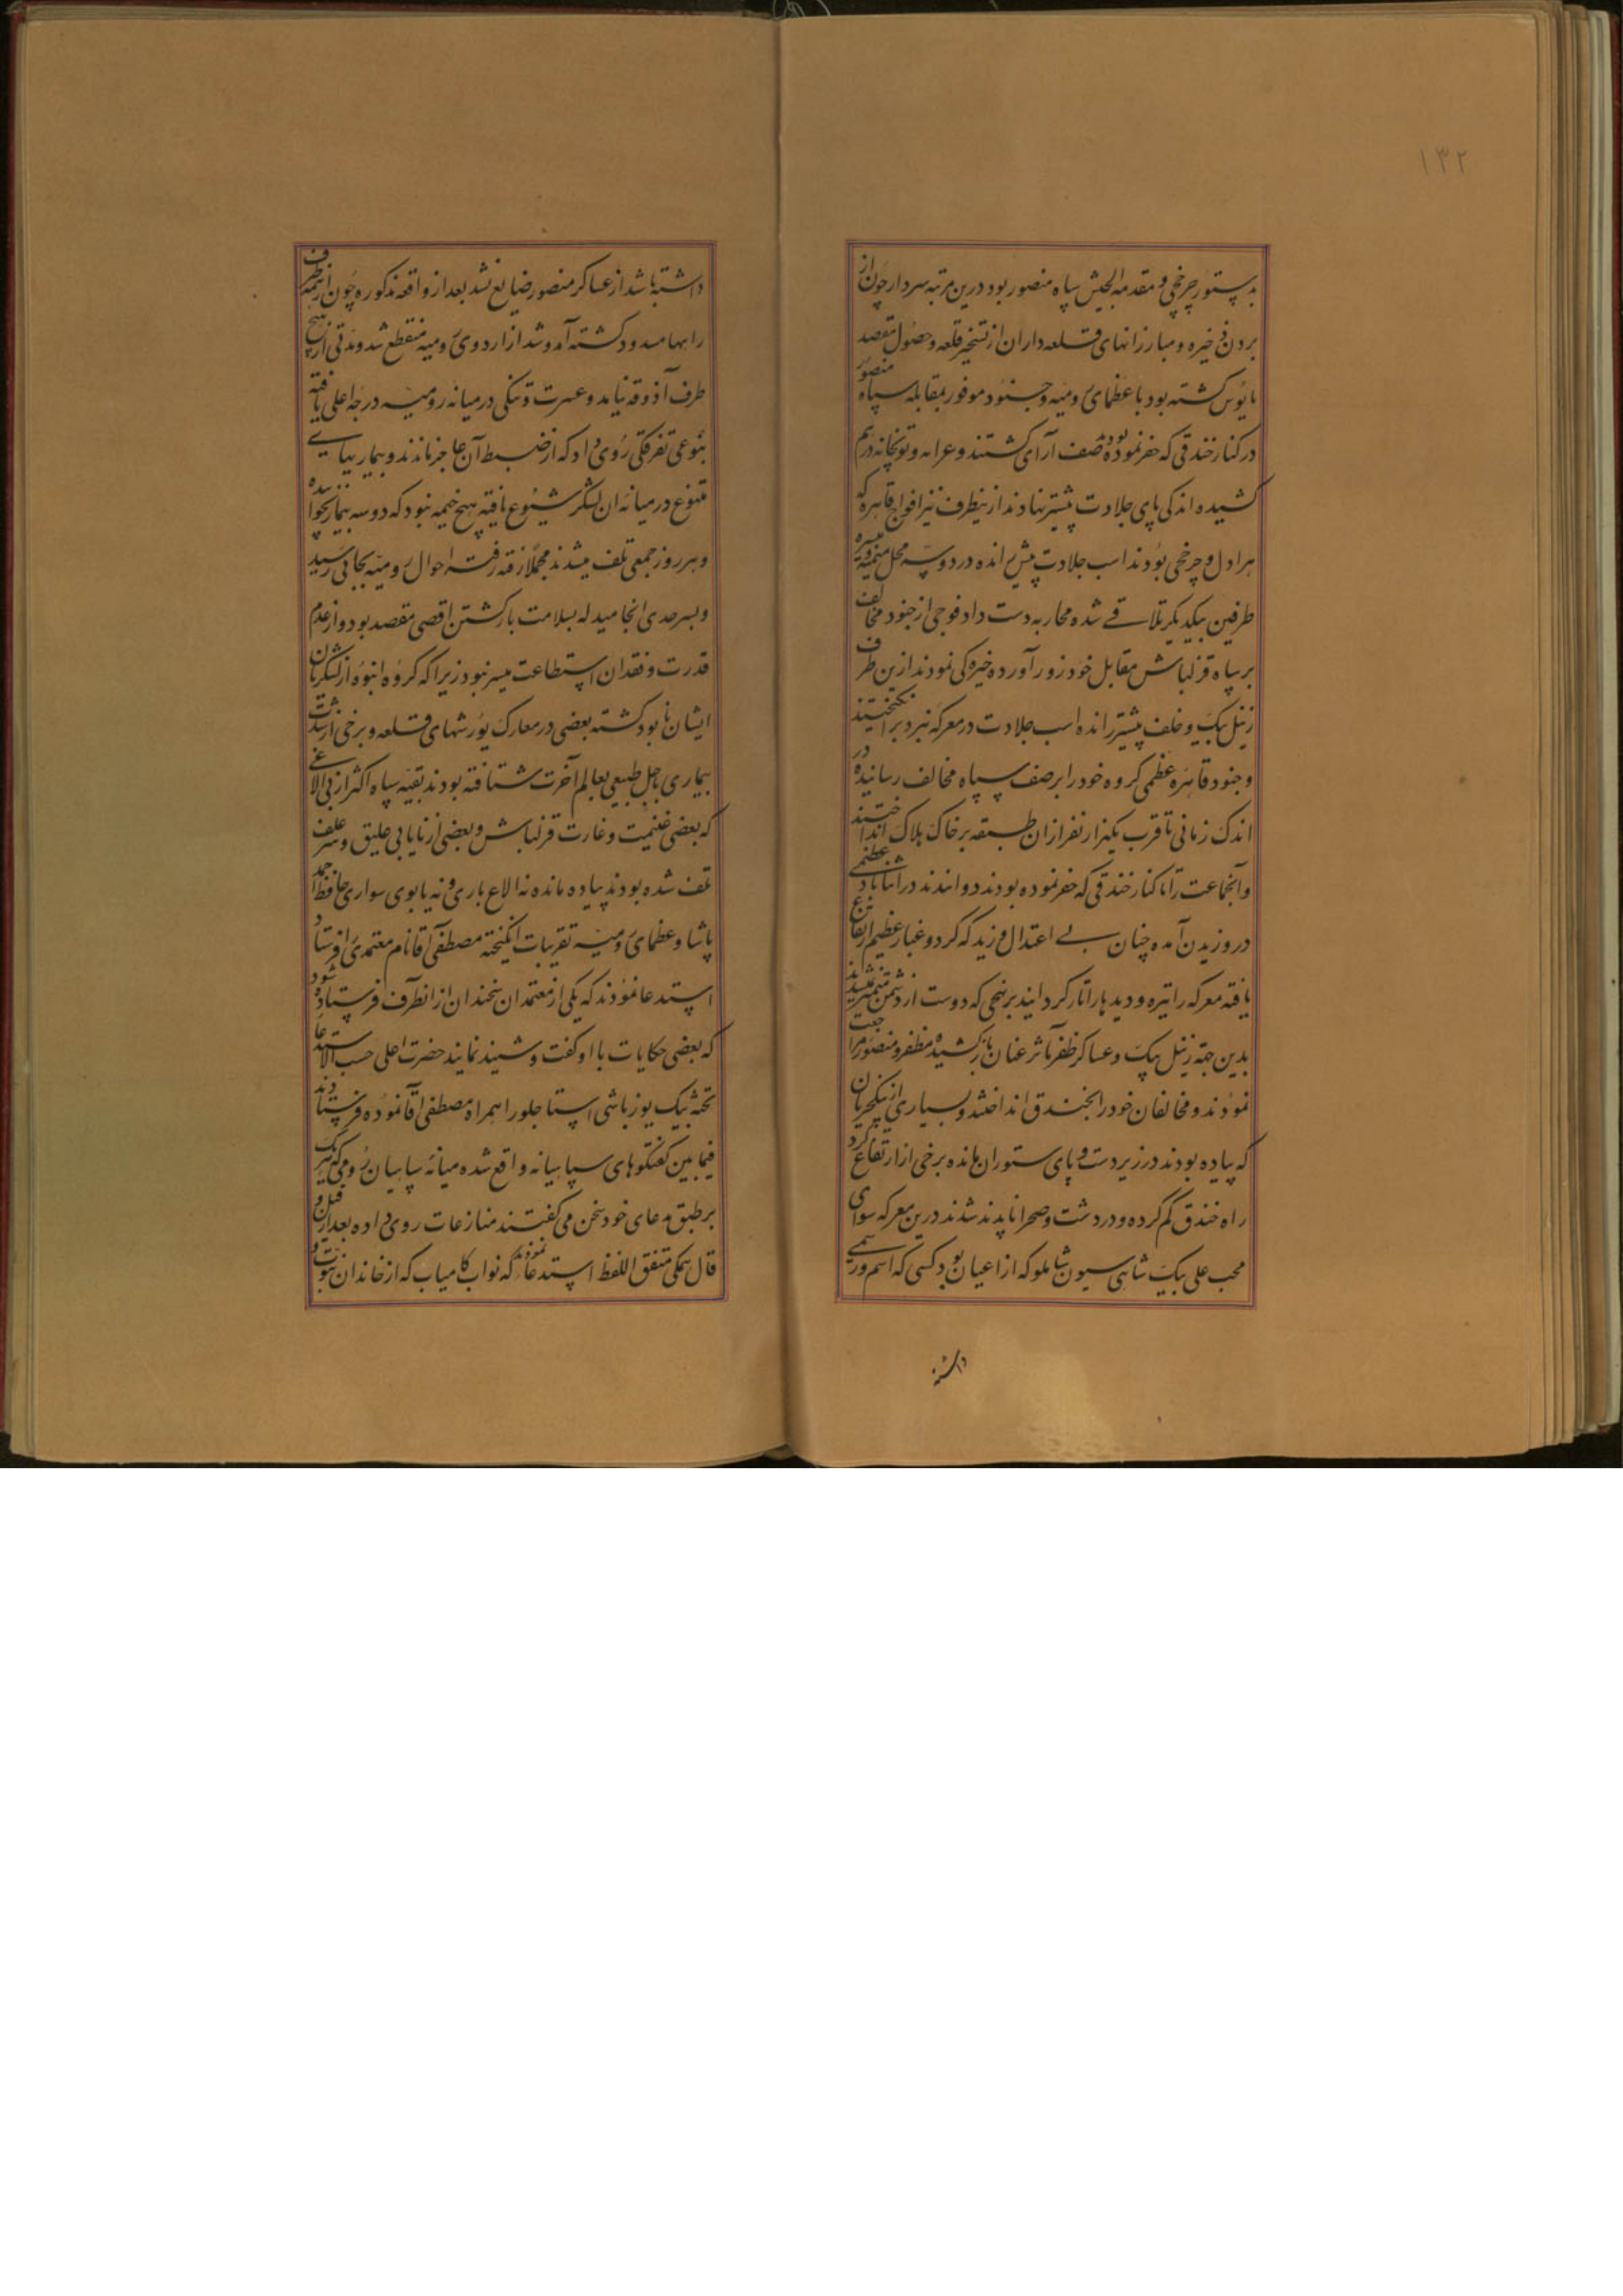 ۱۳۲
بدستور چرخچی و مقدمة الجیش سپاه منصور بود درین مرتبه سردار چون از
بردن ذخیره و مبارزانهای قلعه داران از تسخیر قلعه و حصول مقصد
مایوس کشته بود با عظمای رومیه و جنود موفور بمقابله سپاه منصور
در کنار خندقی که حفر نموده بودند صف آرای کشتند و عرابه و توپخانه در هم
کشیده اندکی پای جلادت پیشتر نهادند ازینطرف نیز افواج قاهره که
هراول و چرخچی بودند اسب جلادت پیش رانده در دو سه محل میمنه و میسره
طرفین بیکدیکر تلاقی شده محاربه دست داد فوجی از جنود مخالف
بر سپاه قزلباش مقابل خود زور آورده خیره کی نمودند ازین طرف
زینل بیک و خلف پیشتر رانده اسب جلادت در معرکه نبرد برانکیختند
و جنود قاهره عظمی کروه خود را بر صف سپاه مخالف رسانیده در
اندک زمانی تا قرب یکهزار نفر از ان طبقه بر خاک هلاک انداختند
و آنجماعت را تا کنار خندقی که حفر نموده بودند دوانیدند در اثنا باد عظیمی
در وزیدن آمده چنان بی اعتدال وزید که کرد و غبار عظیم ارتفاع
یافته معرکه را تیره و دیدها را تار کردانید بر نهجی که دوست از دشمن متمیز نمیشد
بدین جهة زینل بیک و عساکر ظفر مآثر عنان باز کشیده مظفر و منصور مراجعت
نمودند و مخالفان خود را بخندق انداختند و بسیاری از ینکچریان
که پیاده بودند در زیر دست و پای ستوران مانده برخی از ارتفاع کرد
راه خندق کم کرده و در دشت و صحرا ناپدید شدند درین معرکه سوای
محب علی بیک شاهی سیون شاملو که از اعیان بود کسی که اسم و رسمی
داشته
داشته باشد از عساکر منصور ضایع نشد بعد از واقعه مذکوره چون از همه طرف
راهها مسدود کشته آمد و شد از اردوی رومیه منقطع شد و مدتی از هیچ
طرف آذوقه نیامد و عسرت و تنکی در میانه رومیه درجه اعلی یافته
بنوعی تفرقکی روی داد که از ضبط آن عاجز ماندند و بیماریهای
متنوع در میانه ان لشکر شیوع یافته هیچ خیمه نبود که دو سه بیمار نخوابیده
و هر روز جمعی تلف میشدند مجملا رفته رفته احوال رومیه بجائی رسید
و بسرحدی انجامید که بسلامت بازکشتن اقصی مقصد بود و از عدم
قدرت و فقدان استطاعت میسر نبود زیرا که کروه انبوه از لشکریان
ایشان نابود کشته بعضی در معارک یورشهای قلعه و برخی از شدت
بیماری باجل طبیعی بعالم آخرت شتافته بودند بقیه سپاه اکثر از بی الاغی
که بعضی غنیمت و غارت قزلباش و بعضی از نایابی علیق و سر علف
تلف شده بودند پیاده مانده نه الاغ باری و نه یابوی سواری حافظ احمد
پاشا و عظمای رومیه تقریبات انکیخته مصطفی آقا نام معتمدی را فرستاد
استدعا نمودند که یکی از معتمدان سخندان از انطرف فرستاده شود
که بعضی حکایات با او کفت و شنید نمایند حضرت اعلی حسب الاستدعا
تخته بیک یوزباشی استاجلو را همراه مصطفی آقا نموده فرستادند
فیما بین کفتکوهای سپاهیانه واقع شده میانه سپاهیان رومی که هر یک
بر طبق مدعای خود سخن می کفتند منازعات روی داده بعد از قیل و
قال همکی متفق اللفظ استدعا نمودند که نواب کامیاب که از خاندان نبوت و